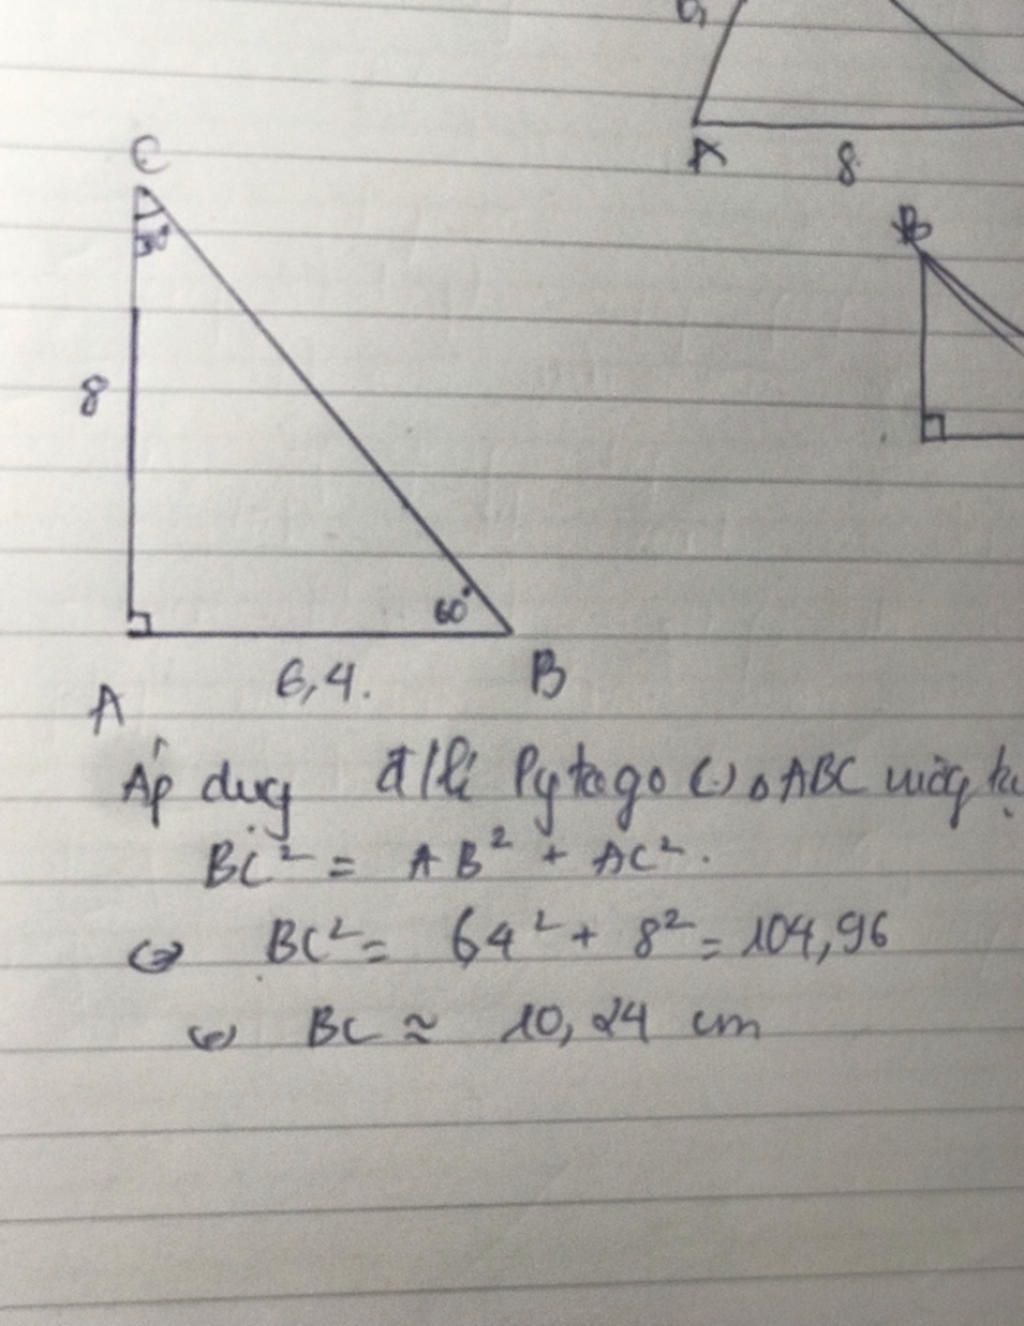 A 8
B
C
8
60°
6,4.
A B
Áp dụng đ/lí Pytago (.) △ABC vuông tại
BC² = AB² + AC².
<=> BC² = 64² + 8² = 104,96
<=> BC ≈ 10,24 cm